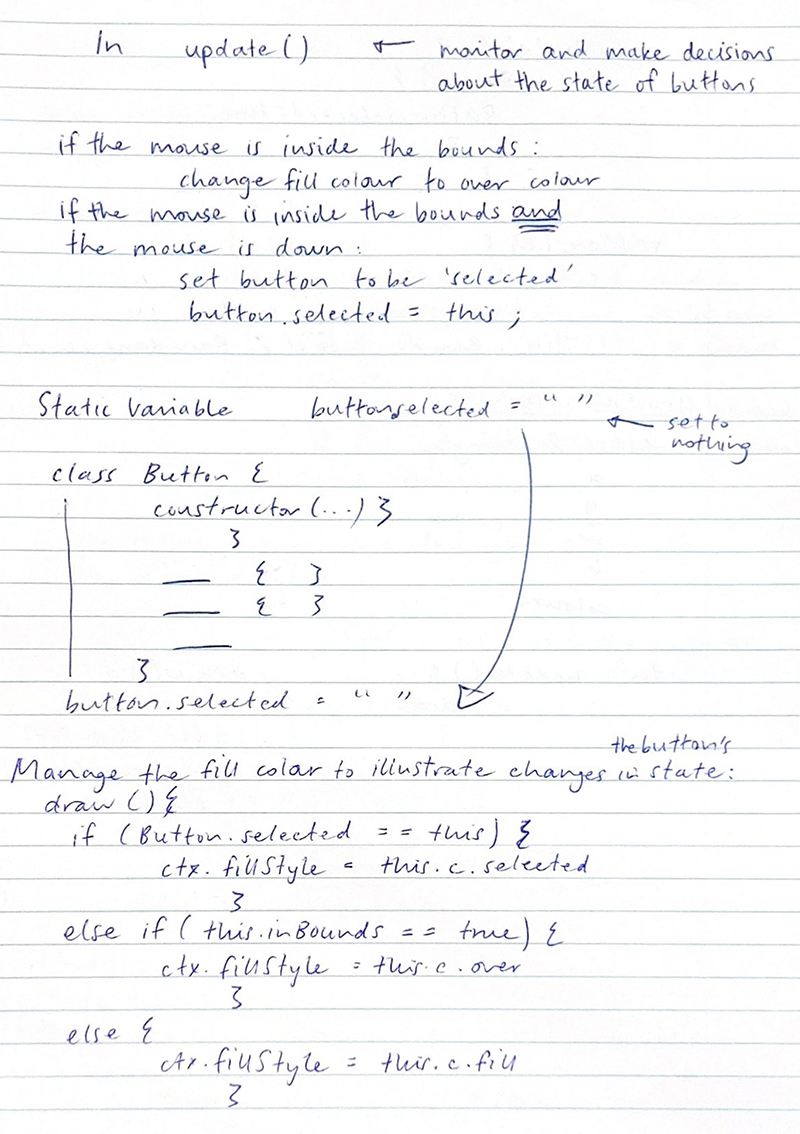 In update() ← monitor and make decisions
about the state of buttons
if the mouse is inside the bounds:
change fill colour to over colour
if the mouse is inside the bounds and
the mouse is down:
set button to be 'selected'
button.selected = this;
Static Variable button.selected = “ ”
← set to
nothing
class Button {
constructor(...) }
}
{ }
{ }
}
button.selected = “ ”
the button's
Manage the fill colar to illustrate changes in state:
draw () {
if (Button.selected == this) {
ctx.fillStyle = this.c.selected
}
else if (this.inBounds == true) {
ctx.fillStyle = this.c.over
}
else {
ctx.fillStyle = this.c.fill
}